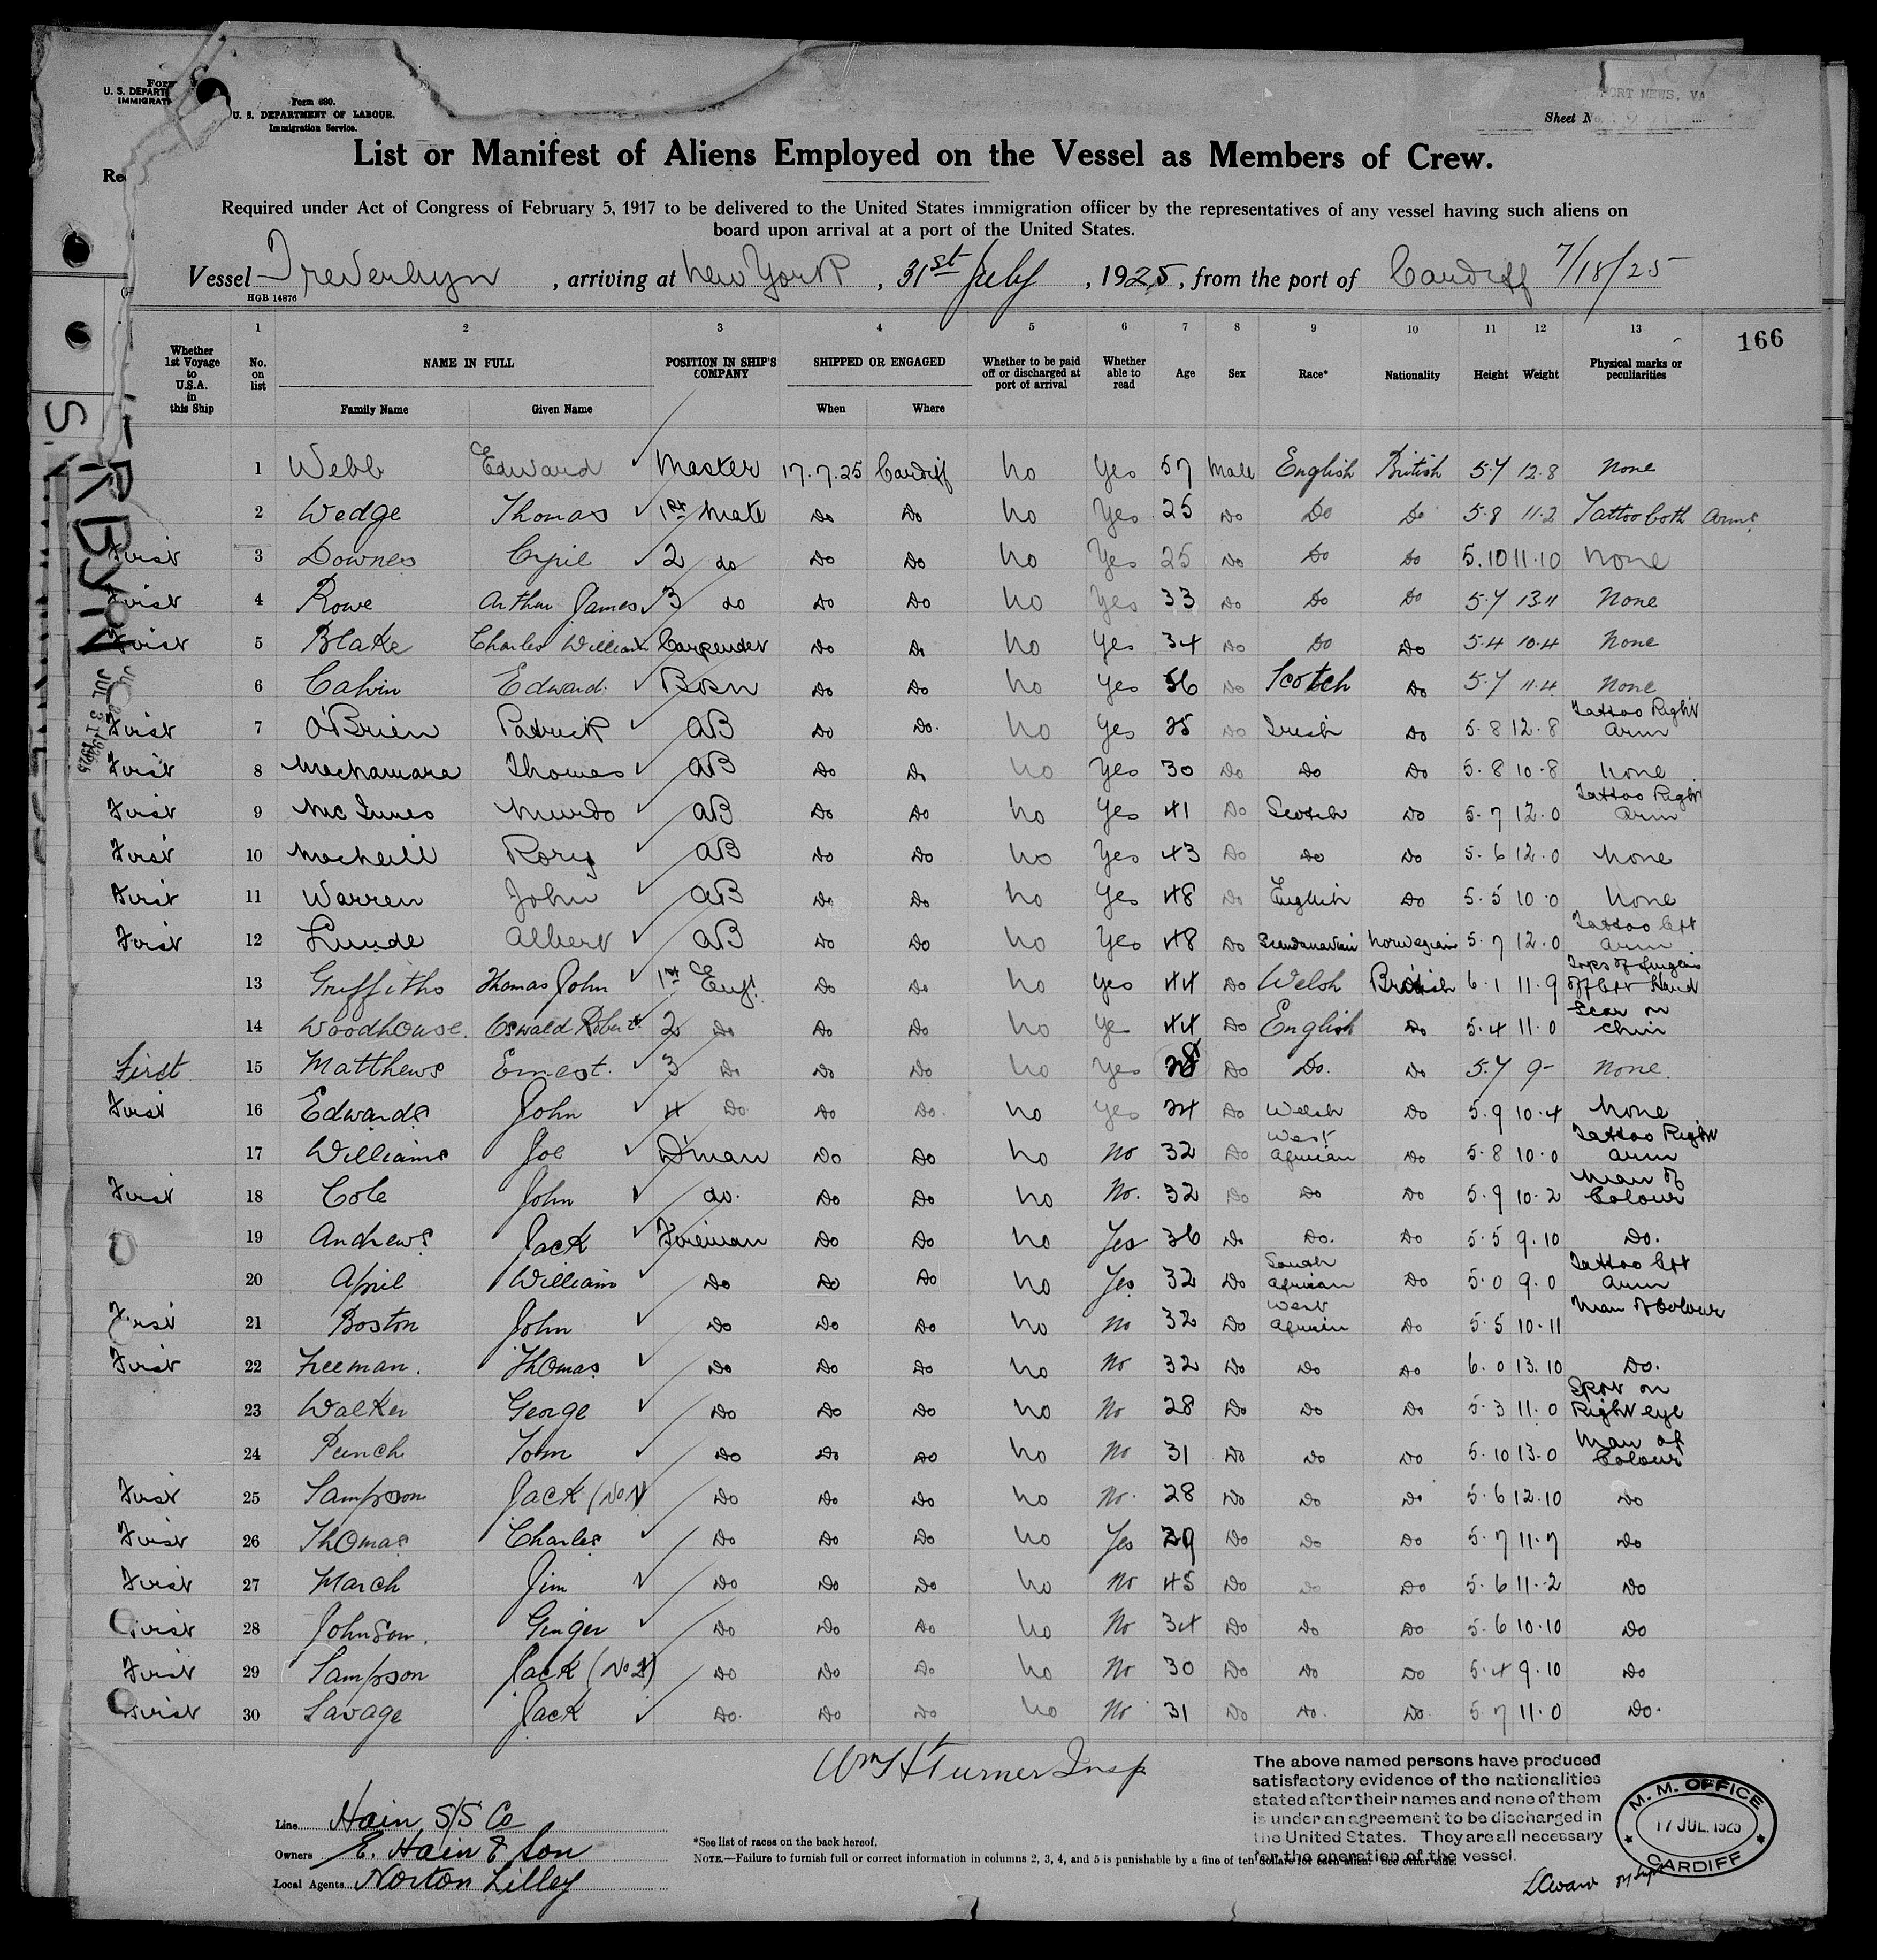 Form 680.
U. S. DEPARTMENT OF LABOUR.
Immigration Service.
U. S. DEPART
IMMIGRAT
PORT NEWS, VA
Sheet No.
List or Manifest of Aliens Employed on the Vessel as Members of Crew.
Required under Act of Congress of February 5, 1917 to be delivered to the United States immigration officer by the representatives of any vessel having such aliens on
board upon arrival at a port of the United States.
Vessel Treverbyn, arriving at New York, 31st July, 1925, from the port of Cardiff 7/18/25
HGB 14876
166
Whether 1st Voyage to U.S.A. in this Ship | 1 No. on list | 2 NAME IN FULL Family Name Given Name | 3 POSITION IN SHIP'S COMPANY | 4 SHIPPED OR ENGAGED When Where | 5 Whether to be paid off or discharged at port of arrival | 6 Whether able to read | 7 Age | 8 Sex | 9 Race* | 10 Nationality | 11 Height | 12 Weight | 13 Physical marks or peculiarities
1 Webb Edward Master 17.7.25 Cardiff No Yes 57 Male English British 5.7 12.8 None
2 Wedge Thomas 1st Mate Do Do No Yes 25 Do Do Do 5.8 11.2 Tattoo both Arms
First 3 Downes Cyril 2 do Do Do No Yes 25 Do Do Do 5.10 11.10 None
First 4 Rowe Arthur James 3 do Do Do No Yes 33 Do Do Do 5.7 13.11 None
First 5 Blake Charles William Carpenter Do Do No Yes 34 Do Do Do 5.4 10.4 None
6 Calvin Edward Bosn Do Do No Yes 56 Do Scotch Do 5.7 11.4 None
First 7 O'Brien Patrick AB Do Do. No Yes 25 Do Irish Do 5.8 12.8 Tattoo Right Arm
First 8 MacNamara Thomas AB Do Do No Yes 30 Do Do Do 5.8 10.8 None
First 9 McInnes Murdo AB Do Do No Yes 41 Do Scotch Do 5.7 12.0 Tattoo Right Arm
First 10 MacNeill Rory AB Do Do No Yes 43 Do Do Do 5.6 12.0 None
First 11 Warren John AB Do Do No Yes 48 Do English Do 5.5 10.0 None
First 12 Lunde Albert AB Do Do No Yes 48 Do Scandanavian Norwegian 5.7 12.0 Tattoo left Arm
13 Griffiths Thomas John 1st Eng. Do Do No Yes 44 Do Welsh British 6.1 11.9 Tops of fingers off left Hand
14 Woodhouse. Oswald Robert. 2 Do Do Do No Ye 44 Do English Do 5.4 11.0 Scar on Chin
First 15 Matthews Ernest. 3 Do Do Do No Yes 28 Do Do. Do 5.7 9- None.
First 16 Edwards John 4 Do Do Do. No Yes 24 Do Welsh Do 5.9 10.4 None
17 Williams Joe D'man Do Do No No 32 Do West African Do 5.8 10.0 Tattoo Right Arm
First 18 Cole John do. Do Do No No. 32 Do Do Do 5.9 10.2 Man of Colour
19 Andrews Jack Fireman Do Do No Yes 36 Do Do. Do 5.5 9.10 Do.
20 April William Do Do Do No Yes 32 Do South African Do 5.0 9.0 Tattoo left Arm
First 21 Boston John Do Do Do No No 32 Do West African Do 5.5 10.11 Man of Colour
First 22 Freeman. Thomas Do Do Do No No 32 Do Do Do 6.0 13.10 Do.
23 Walker George Do Do Do No No 28 Do Do Do 5.3 11.0 Spot on Right eye
24 Punch Tom Do Do Do No No 31 Do Do Do 5.10 13.0 Man of Colour
First 25 Sampson Jack (No 1) Do Do Do No No. 28 Do Do Do 5.6 12.10 Do
First 26 Thomas Charles Do Do Do No Yes 29 Do Do Do 5.7 11.7 Do
First 27 March Jim Do Do Do No No 45 Do Do Do 5.6 11.2 Do
First 28 Johnson. Ginger Do Do Do No No 34 Do Do Do 5.6 10.10 Do
First 29 Sampson Jack (No 2) Do Do Do No No 30 Do Do Do 5.4 9.10 Do
First 30 Savage Jack Do. Do Do No No 31 Do Do. Do. 5.7 11.0 Do.
Wm H Turner Insp
Line Hain S/S Co
Owners E. Hain & Son
Local Agents Norton Lilley
*See list of races on the back hereof.
NOTE.—Failure to furnish full or correct information in columns 2, 3, 4, and 5 is punishable by a fine of ten dollars for each alien. See other side.
The above named persons have produced
satisfactory evidence of the nationalities
stated after their names and none of them
is under an agreement to be discharged in
the United States. They are all necessary
for the operation of the vessel.
M. M. OFFICE
17 JUL 1925
CARDIFF